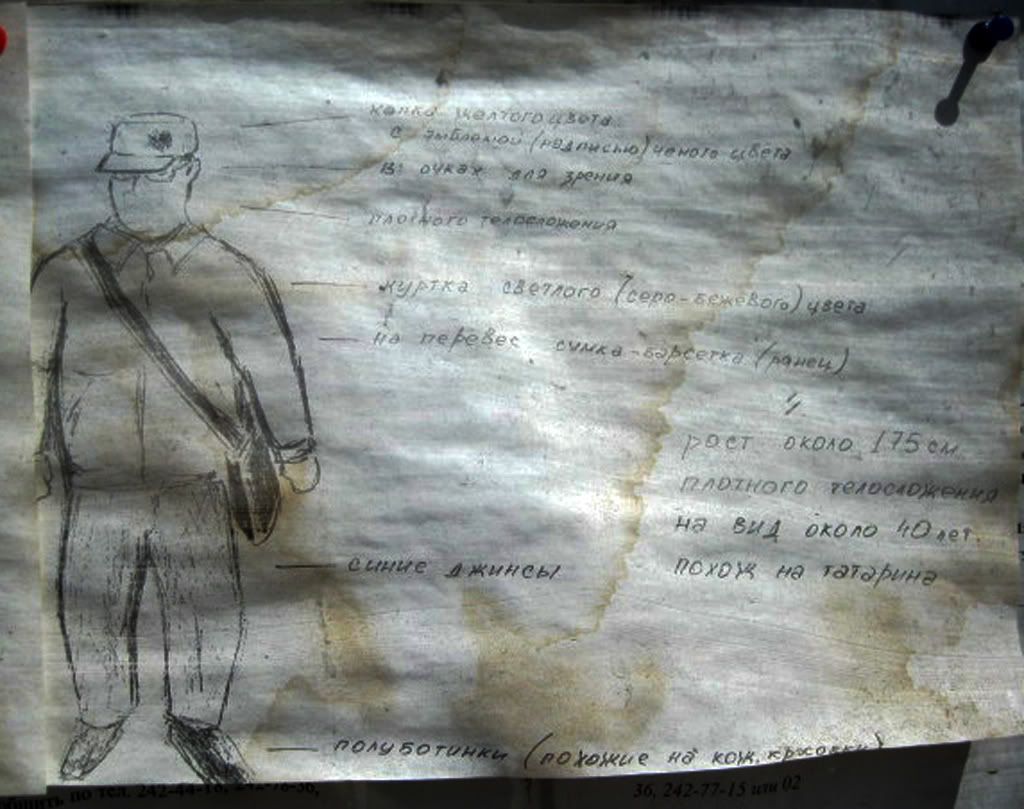 кепка желтого цвета
с эмблемой (надписью) ченого цвета
в очках для зрения
плотного телосложения
куртка светлого (серо-бежевого) цвета
на перевес сумка-барсетка (ранец)
рост около 175 см.
плотного телосложения
на вид около 40 лет.
похож на татарина
синие джинсы
полуботинки (похожие на кож. кросовки)
по тел. 242-44-18,
36, 242-77-15 или 02